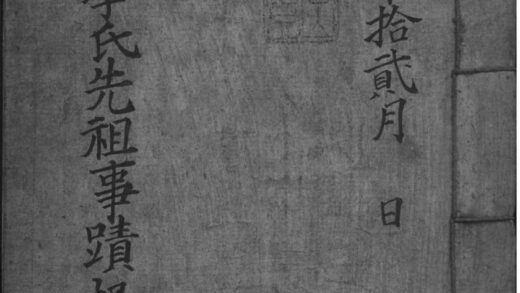 拾貳月 日
李氏先祖事蹟